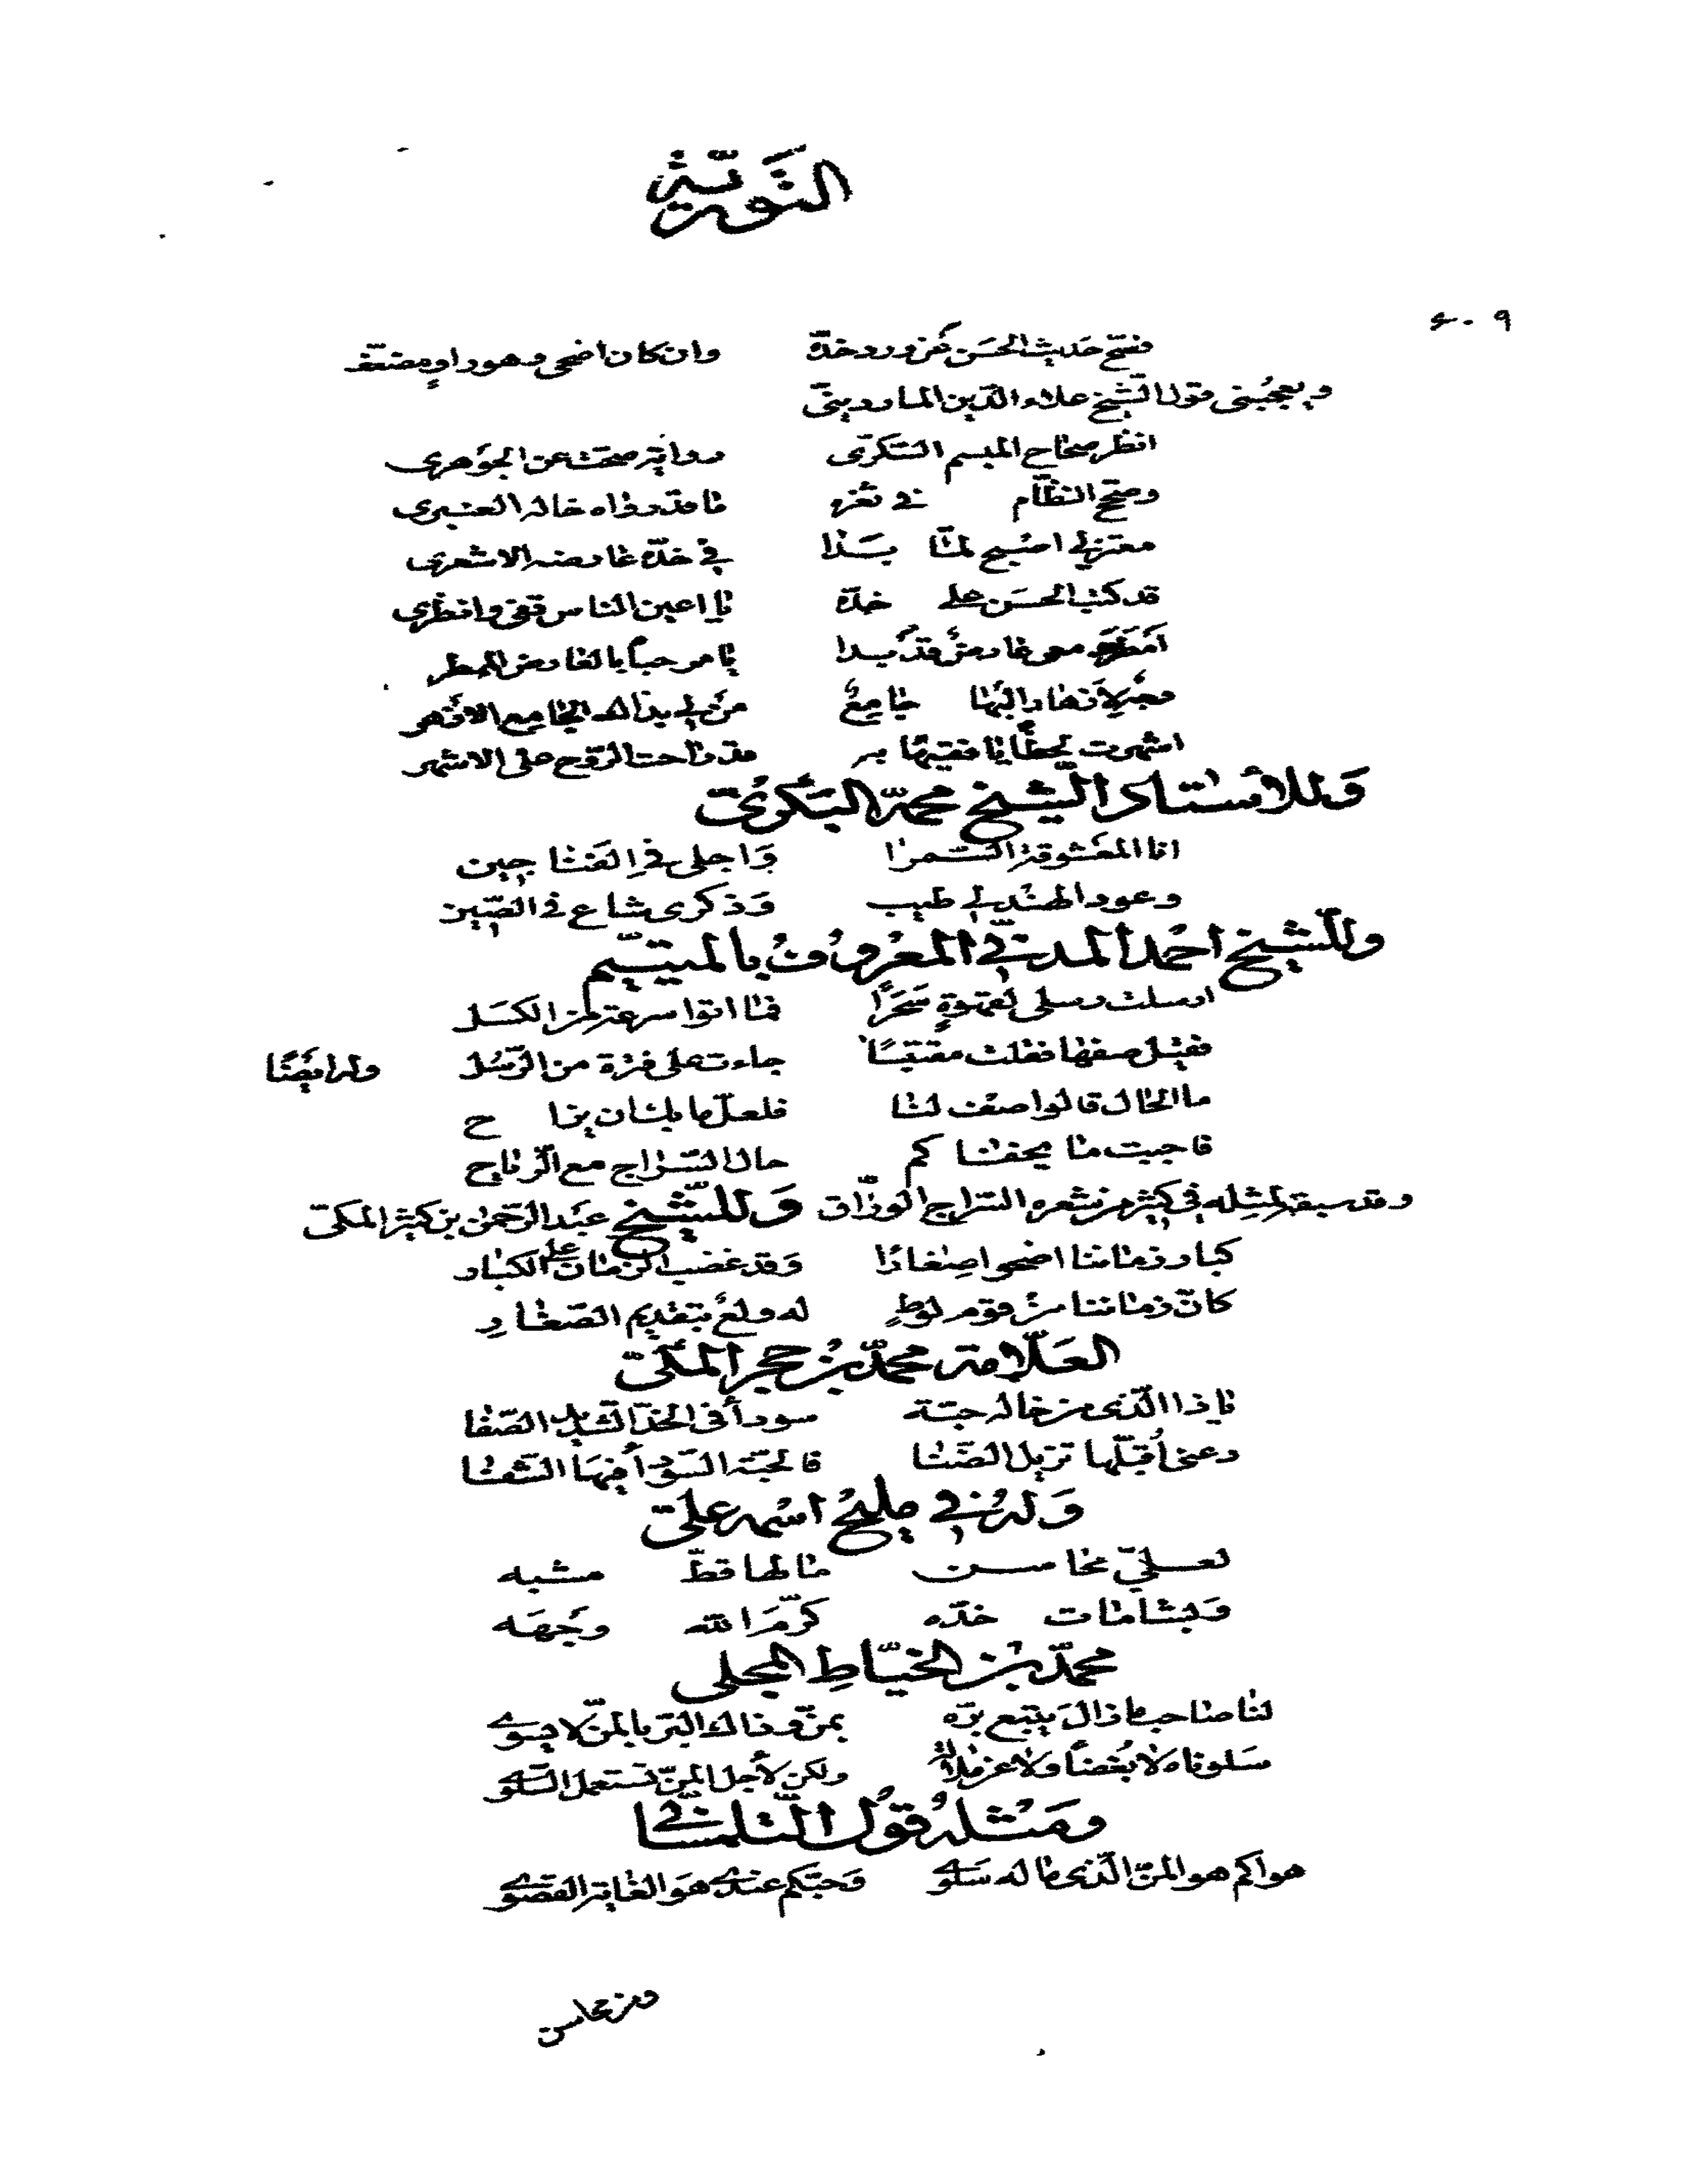 التورية
٤٠٩
فصح حديث الحسن عن ورد خده وان كان اضحى وهو راوٍ مضعف
ويعجبنى قول الشيخ علاء الدين الماردينى
انظر صحاح المبسم السكرى رواية صحت عن الجوهرى
وصحح النظام فى ثغره ما قد رواه خاله العنبرى
معتزلي اصبح لما بدا في خده عارضه الاشعرى
قد كتب الحسن على خده يا اعين الناس قفى وانظرى
دمعى عارض قد بدا يا مرحباً بالعارض الممطر
جامع من لي بذاك الجامع الازهر
اشهرت لحظا يا فقيها به قد راحت الروح على الاشهر
وللأستاذ الشيخ محمد البكرى
انا المعشوقة السمرا وَاجلى في الفناجين
وعود الهند لي طيب وَذكرى شاع في الصين
وللشيخ احمد المدني المعروف بالمتيم
ارسلت رسلى لقهوةٍ سَحَرًا فما اتوا سرعة لمن الكسل
فقيل صفها فقلت مقتبسًا جاءت على فترة من الرسل وله ايضًا
ما الحال قالوا صف لنا فلعل ما بك ان يزاح
فاجبت ما يخفاكم حال السراج مع الرياح
وقد سبق لمثله في كثير من شعره السراج الوراق وَللشيخ عبد الرحمن بن كثير المكي
كبار زماننا اضحوا صغارًا وَقد غضب الزمان على الكبار
كان زماننا من قوم لوطٍ له ولع بتقديم الصغارِ
العلامة محمد بن حجر المكي
يا ذا الذى من خاله حبة سودأ في الخد الشديد الصفا
دعنى أقبلها تزيل الضنا فالحبة السودأ فيها الشفا
وَله في مليح اسمه على
لعلي محاسن ما لها قط مشبه
وَبشامات خده كرّمَ الله وجهَه
محمد بن الخياطِ المحلى
لنا صاحب ما زال يتبع بره بمن وذاك البر بالمن لا يسوى
سَلوناه لا بُغضاً وَلا عن ملالة ولكن لأجل المن تستعمل السلوى
ومثله قول التلمساني
هواكم هو المن الذى ما له سَلوى وَحبكم عندى هوَ الغاية القصوى
ومن محاسن